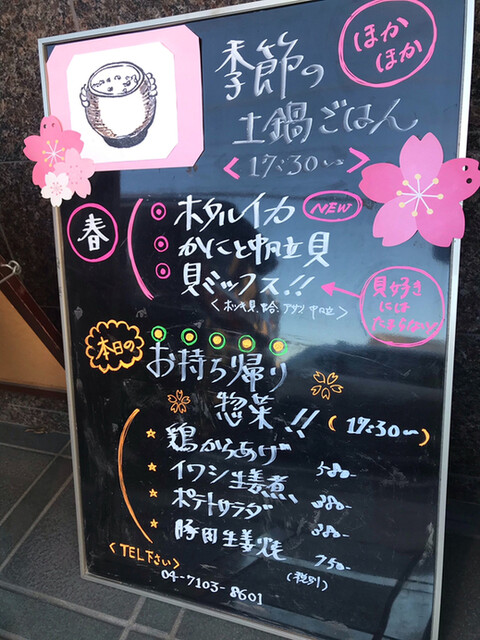 季節の
ほかほか
土鍋ごはん
<17:30〜>
春
ホタルイカ
NEW
かにと帆立貝
貝ミックス!!
貝好き
には
たまらない
<ホッキ貝、蛤、アサリ、帆立>
本日の
お持ち帰り
惣菜!!
(17:30〜)
鶏からあげ
580-
イワシ生姜煮
380-
ポテトサラダ
380-
豚肉生姜焼
750-
(税別)
<TEL下さい>
04-7103-8601